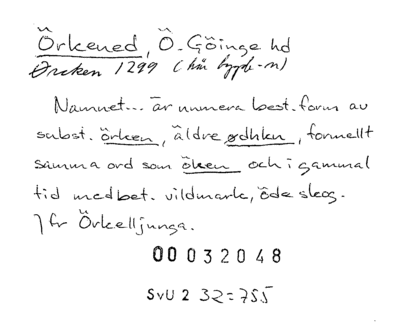 Örkened, Ö. Göinge hd
Ørcken 1299 (här bygde-n)
Namnet... är numera best. form av
subst. örken, äldre ørdhkn, formellt
samma ord som öken och i gammal
tid med bet. vildmark, öde skog.
Jfr Örkelljunga.
00 032048
SvU 2 32=755